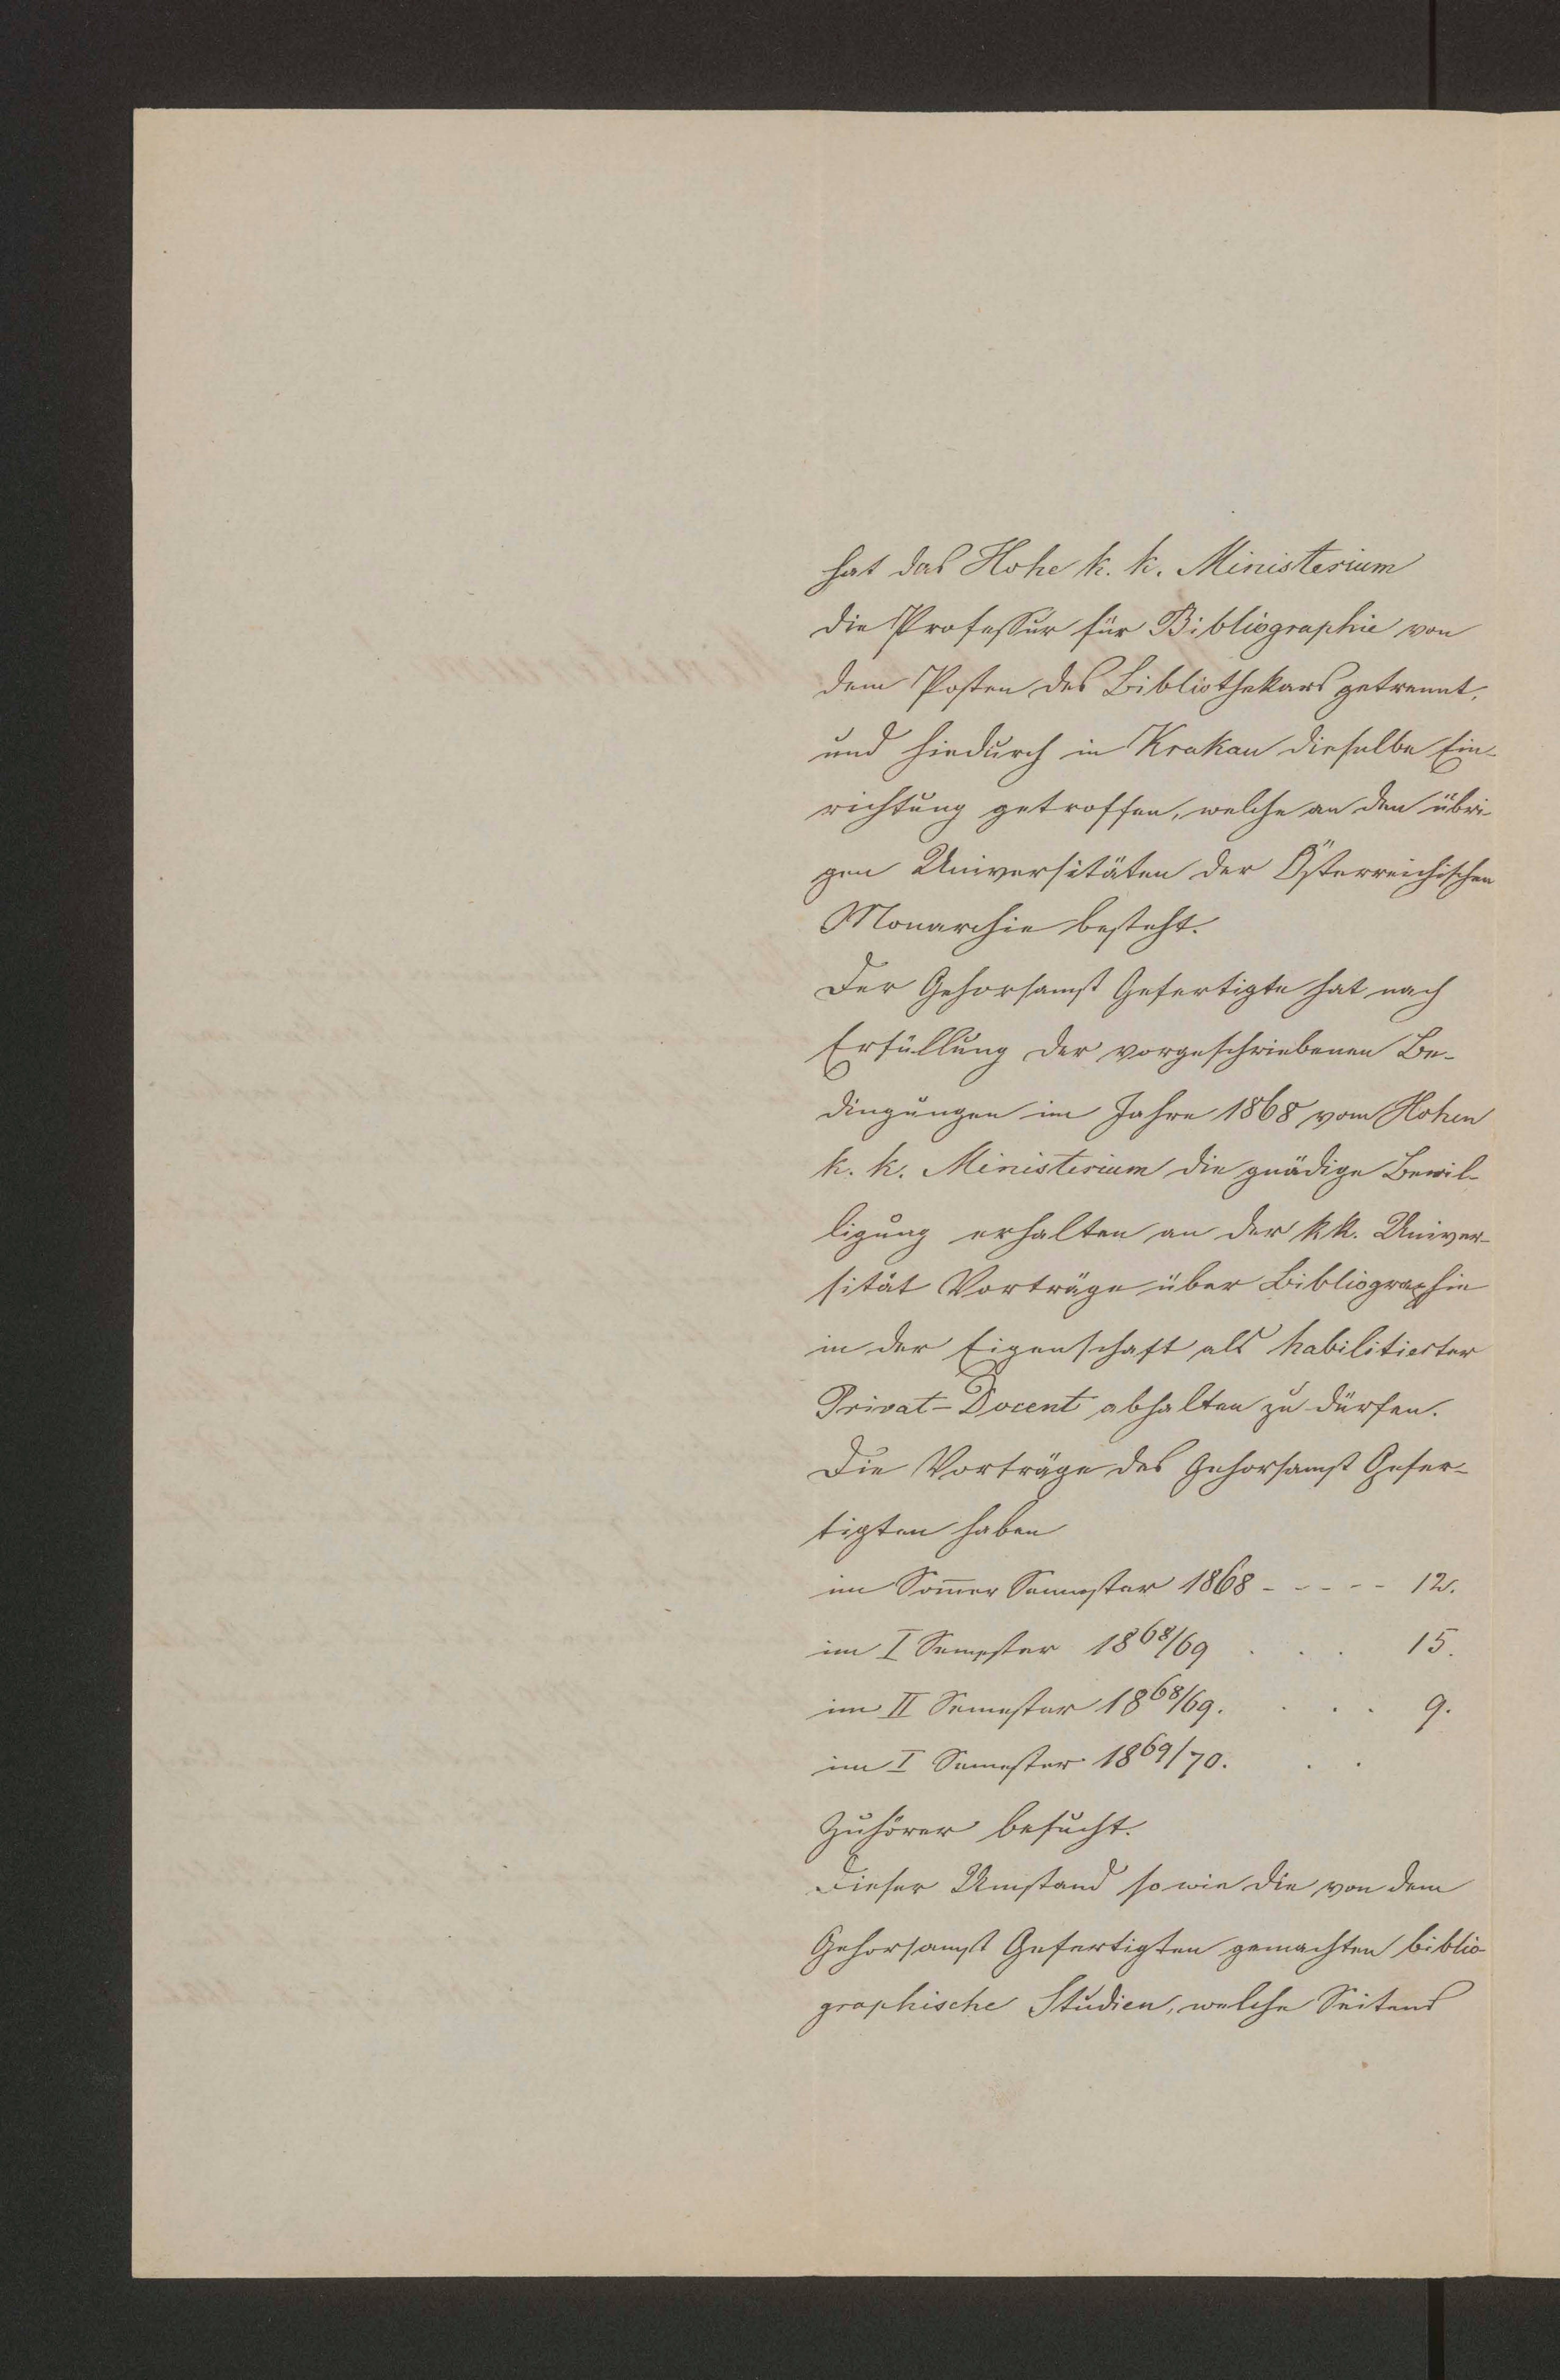 hat das Hohe k. k. Ministerium
die Professur für Bibliographie von
dem Posten des Bibliothekars getrennt,
und hiedurch in Krakau dieselbe Ein-
richtung getroffen, welche an den übri-
gen Universitäten der Österreichischen
Monarchie besteht.
Der Gehorsamst Gefertigte hat nach
Erfüllung der vorgeschriebenen Be-
dingungen im Jahre 1868 vom Hohen
k. k. Ministerium die gnädige Bewil-
ligung erhalten an der kk. Univer-
sität Vorträge über Bibliographie
in der Eigenschaft als habilitierter
Privat-Docent abhalten zu dürfen.
Die Vorträge des Gehorsamst Gefer-
tigten haben
im Som̅er Semester 1868 - - - - - 12.
im I Semester 1868/69 . . . 15.
im II Semester 1868/69. . . . 9.
im I Semester 1869/70. . .
Zuhörer besucht.
Dieser Umstand so wie die von dem
Gehorsamst Gefertigten gemachten biblio-
graphische Studien, welche Seitens